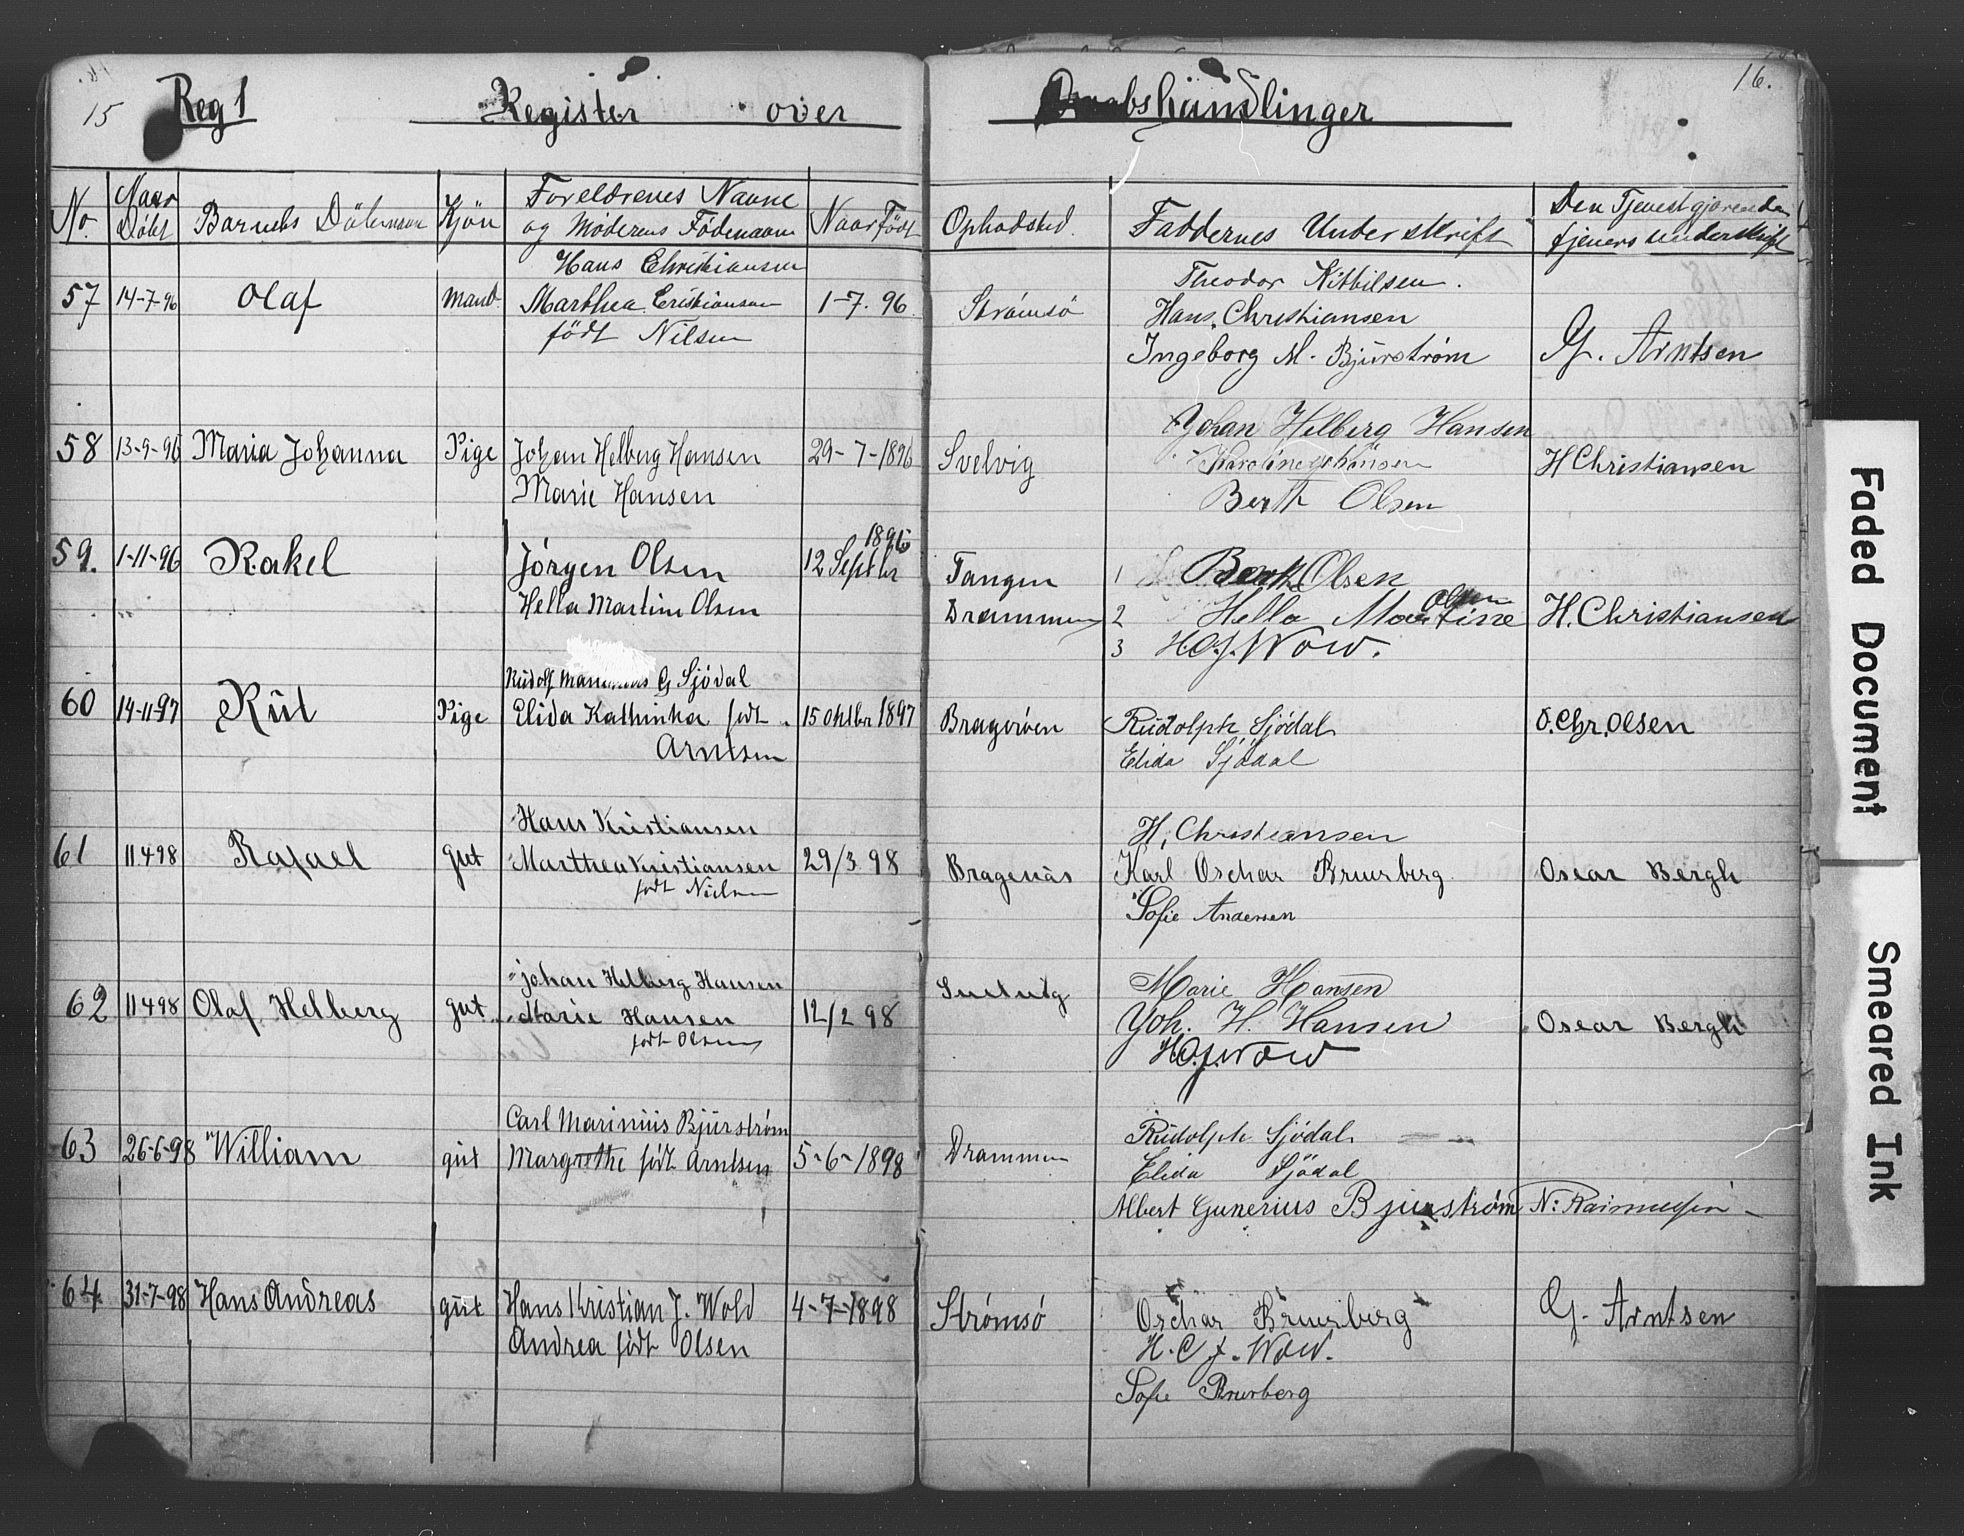 15
Reg 1
Register over
Daabshandlinger
16.
No.
Naar Döbt
Barnets Döbenavn
Kjön
Foreldrenes Navne og Moderens Födenavn
Naar Födt
Opholdsted.
Faddernes Underskrift
Den Tjenestgjørenden tjeners underskrift
57 14-7-96 Olaf Mand.
Hans Christiansen
Marthea Cristiansen
född Nilsen
1-7. 96
Strømsö
Theodor Kittilsen.
Hans. Christiansen
Ingeborg M. Bjurström
G. Arntsen
58 13-9-96 Maria Johanna Pige
Johan Helberg Hansen
Marie Hansen
29-7-1896
Svelvig
Johan Helberg Hansen
Berth Olsen
H Christiansen
59. 1-11-96 Rakel
Jörgen Olsen
Hella Martine Olsen
1896
12 Septbr
Tangen
Drammen
1 Berth Olsen
2 Hella Martine Olsen
3 H.C.J. Wold.
H. Christiansen
60 14-11-97 Rut Pige
Rudolf G Sjödal
Elida Kathinka født
Arntsen
15 Oktbr 1897
Bragerøen
Rudolph Sjödal
Elida Sjödal
O. Chr. Olsen
61 11 4 98 Rafael gut
Hans Kristiansen
Marthea Kristiansen
født Nielsen
29/3 98
Bragenäs
H. Christiansen
Karl Oschar Bruurberg
Sofie Andersen
Oscar Bergh
62 11 4 98 Olaf Helberg gut
Johan Helberg Hansen
Marie Hansen
født Olsen
12/2 98
Svelvig
Marie Hansen
Joh. H. Hansen
H.C.J. Wold
Oscar Bergh
63 26-6-98 William gut
Carl Marinius Bjurstrøm
Margrethe født Arntsen
5-6-1898
Drammen
Rudolph Sjödal
Elida Sjödal
Albert Gunerius Bjurstrøm
N: Rasmussen
64 31-7-98 Hans Andreas gut
Hans Kristian J. Wold
Andrea født Olsen
4-7-1898
Strømsö
Oschar Bruurberg
H. C J. Wold.
Sofie Bruurberg
G. Arntsen
Faded Document
Smeared Ink